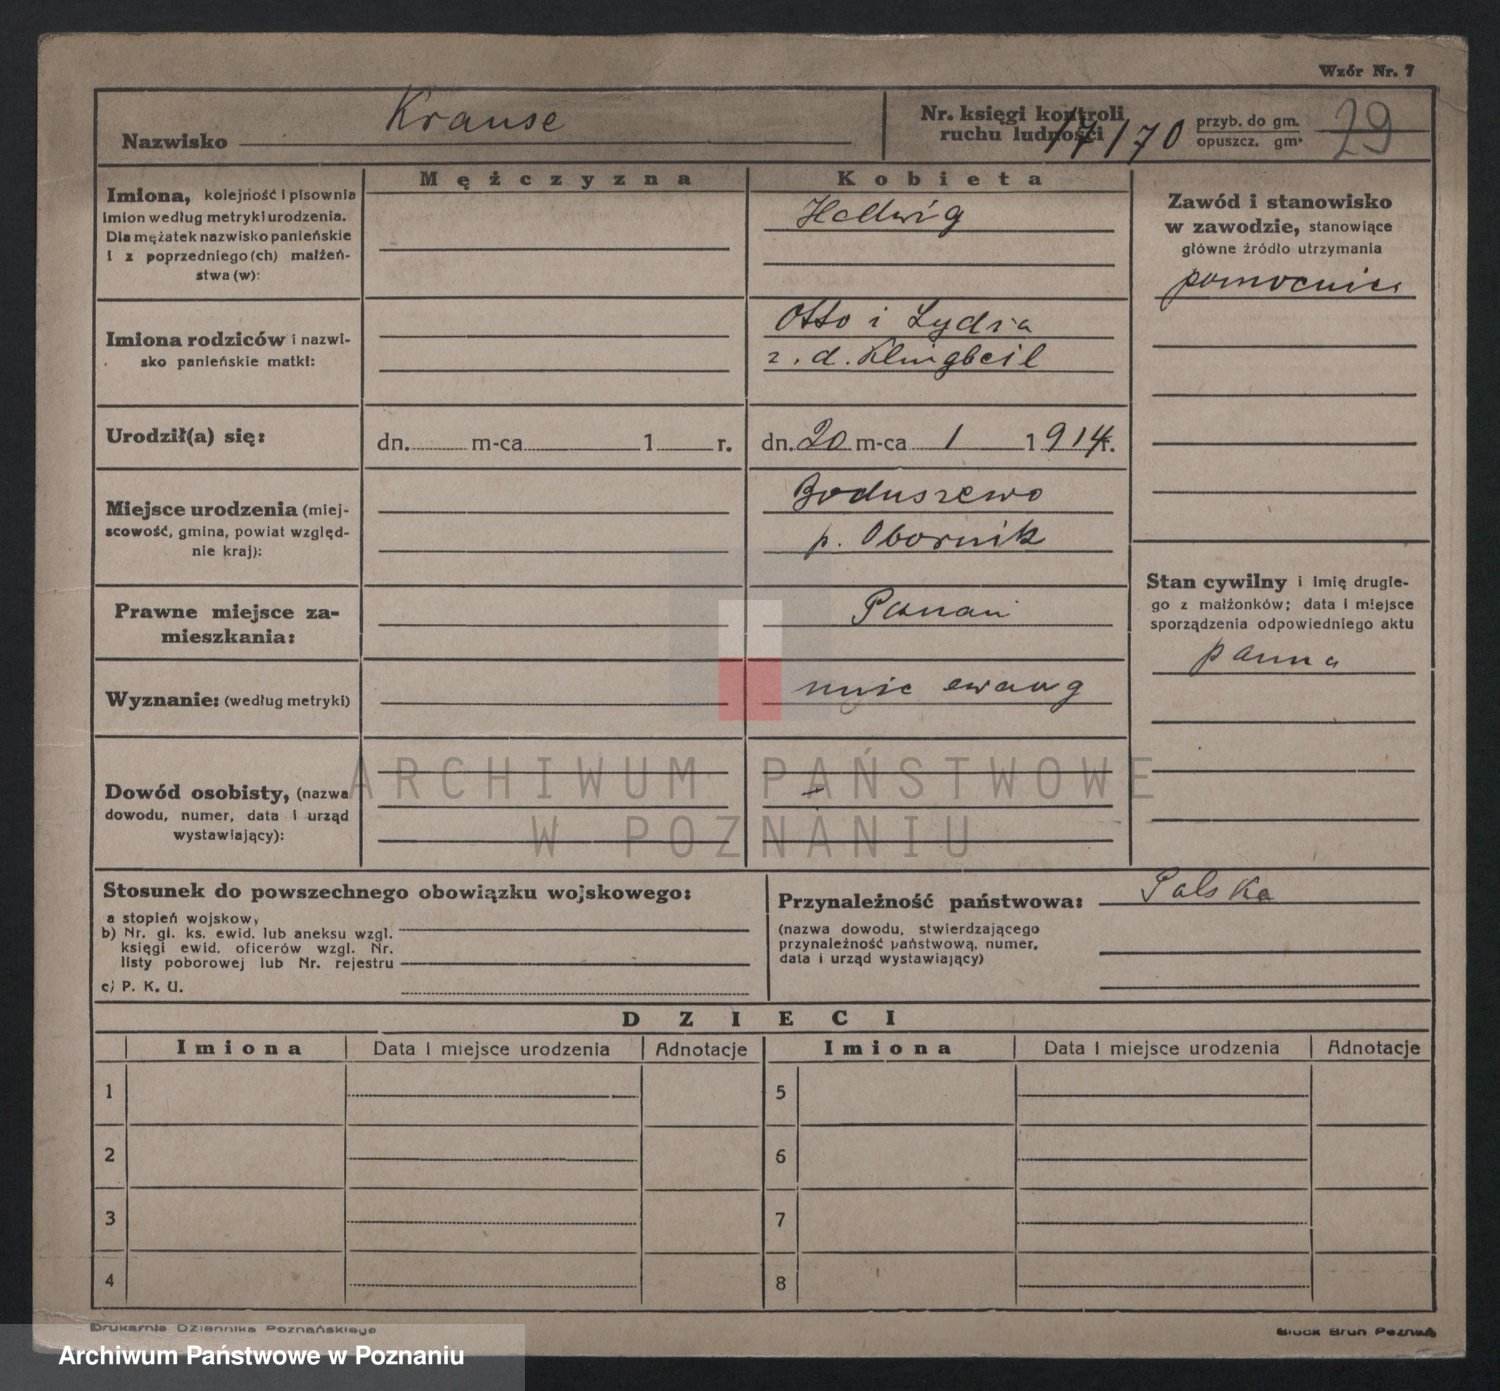 Wzór Nr. 7
Nazwisko Krause
Nr. księgi kontroli
ruchu ludności 17/70
przyb. do gm.
opuszcz. gm.
29
Mężczyzna
Kobieta
Imiona, kolejność i pisownia
imion według metryki urodzenia.
Dla mężatek nazwisko panieńskie
i z poprzedniego (ch) małżeń-
stwa (w):
Hedwig
Zawód i stanowisko
w zawodzie, stanowiące
główne źródło utrzymania
pomocnica
Imiona rodziców i nazwi-
sko panieńskie matki:
Otto i Lydia
z. d. Klingbeil
Urodził(a) się:
dn. m-ca 1 r.
dn. 20 m-ca 1 1914 r.
Miejsce urodzenia (miej-
scowość, gmina, powiat względ-
nie kraj):
Boduszewo
p. Obornik
Prawne miejsce za-
mieszkania:
Poznań
Stan cywilny i imię drugie-
go z małżonków; data i miejsce
sporządzenia odpowiedniego aktu
panna
Wyznanie: (według metryki)
ewang
Dowód osobisty, (nazwa
dowodu, numer, data i urząd
wystawiający):
ARCHIWUM PAŃSTWOWE
W POZNANIU
Stosunek do powszechnego obowiązku wojskowego:
a stopień wojskowy
b) Nr. gl. ks. ewid. lub aneksu wzgl.
księgi ewid. oficerów wzgl. Nr.
listy poborowej lub Nr. rejestru
c) P. K. U.
Przynależność państwowa: Polska
(nazwa dowodu, stwierdzającego
przynależność państwową, numer,
data i urząd wystawiający)
DZIECI
Imiona Data i miejsce urodzenia Adnotacje Imiona Data i miejsce urodzenia Adnotacje
1 5
2 6
3 7
4 8
Drukarnia Dziennika Poznańskiego
Block Brun Poznań
Archiwum Państwowe w Poznaniu